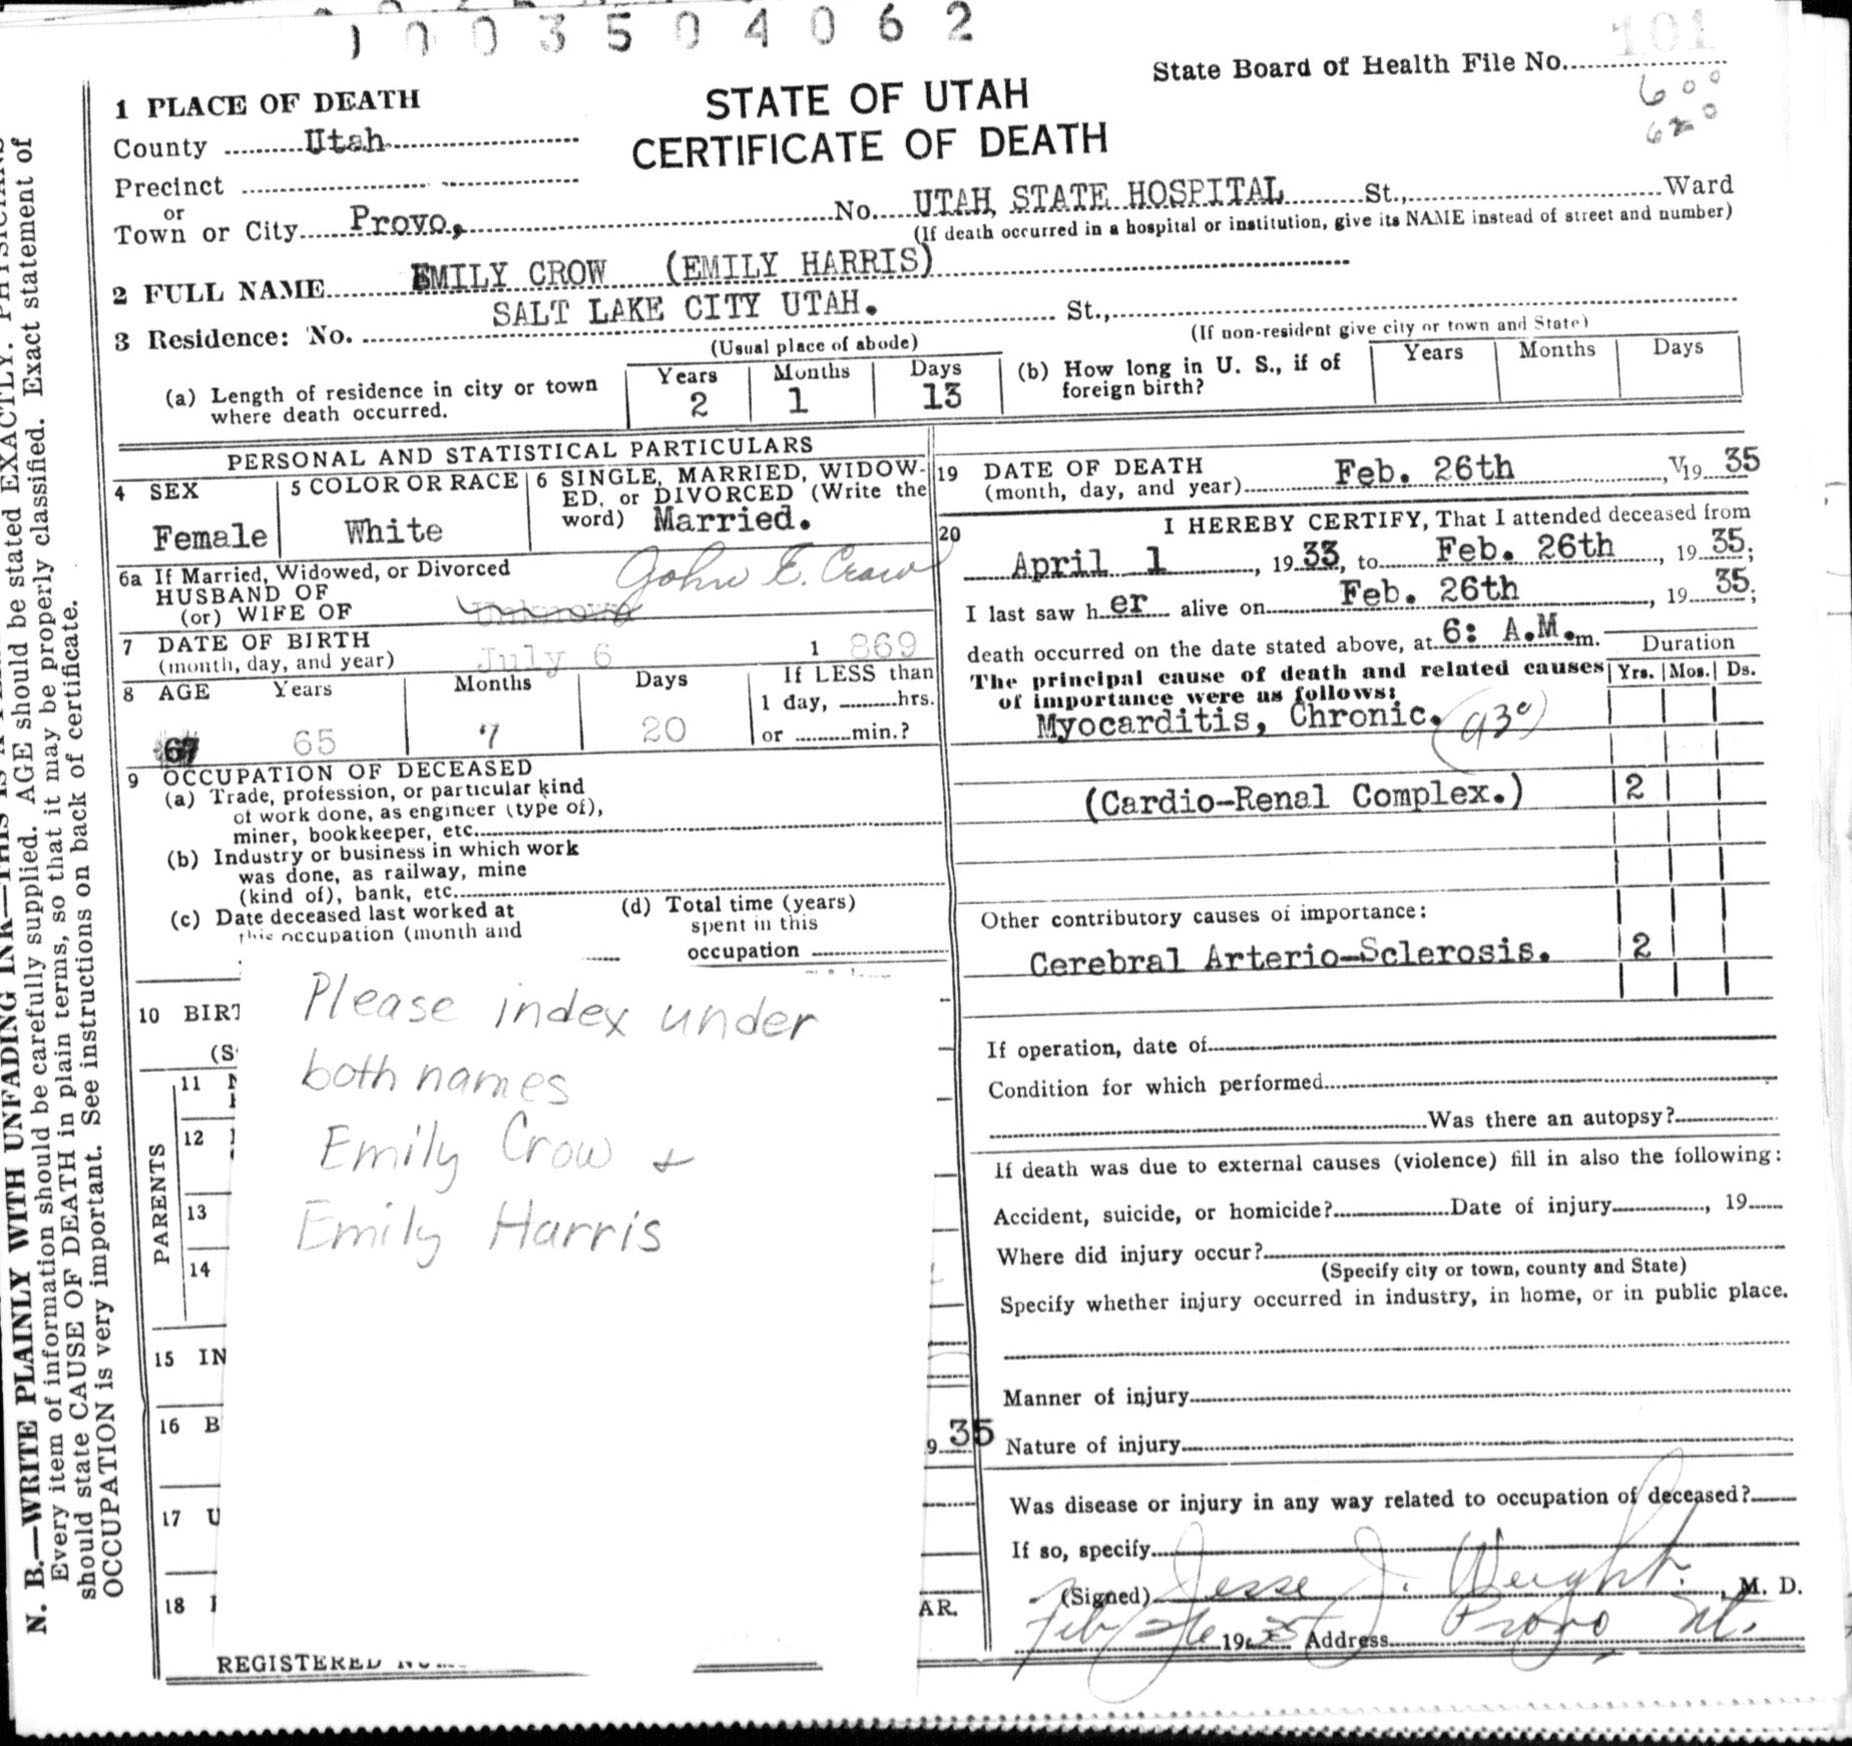 1003504062
State Board of Health File No. 101
600
620
STATE OF UTAH
CERTIFICATE OF DEATH
1 PLACE OF DEATH
County Utah
Precinct
or
Town or City Provo, No. UTAH STATE HOSPITAL St., Ward
(If death occurred in a hospital or institution, give its NAME instead of street and number)
2 FULL NAME EMILY CROW (EMILY HARRIS)
3 Residence: No. SALT LAKE CITY UTAH. St.,
(Usual place of abode) (If non-resident give city or town and State)
(a) Length of residence in city or town where death occurred. Years 2 Months 1 Days 13
(b) How long in U. S., if of foreign birth? Years Months Days
PERSONAL AND STATISTICAL PARTICULARS
4 SEX
Female
5 COLOR OR RACE
White
6 SINGLE, MARRIED, WIDOW-
ED, or DIVORCED (Write the
word) Married.
6a If Married, Widowed, or Divorced
HUSBAND OF
(or) WIFE OF John E. Crow
Unknown
7 DATE OF BIRTH
(month, day, and year) July 6 1 869
8 AGE Years Months Days If LESS than
1 day, hrs.
67 65 7 20 or min.?
9 OCCUPATION OF DECEASED
(a) Trade, profession, or particular kind
of work done, as engineer (type of),
miner, bookkeeper, etc.
(b) Industry or business in which work
was done, as railway, mine
(kind of), bank, etc.
(c) Date deceased last worked at
this occupation (month and
(d) Total time (years)
spent in this
occupation
10 BIRT
(S
PARENTS
11
12
13
14
15 IN
16 B
17 U
18
REGISTERED
Please index under
both names
Emily Crow +
Emily Harris
9 35
AR.
19 DATE OF DEATH
(month, day, and year) Feb. 26th, V19 35
20 I HEREBY CERTIFY, That I attended deceased from
April 1, 19 33, to Feb. 26th, 19 35;
I last saw h er alive on Feb. 26th, 19 35;
death occurred on the date stated above, at 6: A.M. m.
Duration
The principal cause of death and related causes Yrs. Mos. Ds.
of importance were as follows:
Myocarditis, Chronic. 93c
(Cardio-Renal Complex.) 2
Other contributory causes of importance:
Cerebral Arterio-Sclerosis. 2
If operation, date of
Condition for which performed
Was there an autopsy?
If death was due to external causes (violence) fill in also the following:
Accident, suicide, or homicide? Date of injury, 19
Where did injury occur?
(Specify city or town, county and State)
Specify whether injury occurred in industry, in home, or in public place.
Manner of injury
Nature of injury
Was disease or injury in any way related to occupation of deceased?
If so, specify
(Signed) Jesse J. Weight, M. D.
Feb/26 1935 Address Provo Ut.
N. B.—WRITE PLAINLY WITH UNFADING INK—THIS IS A
Every item of information should be carefully supplied. AGE should be stated EXACTLY. PHYSICIANS
should state CAUSE OF DEATH in plain terms, so that it may be properly classified. Exact statement of
OCCUPATION is very important. See instructions on back of certificate.